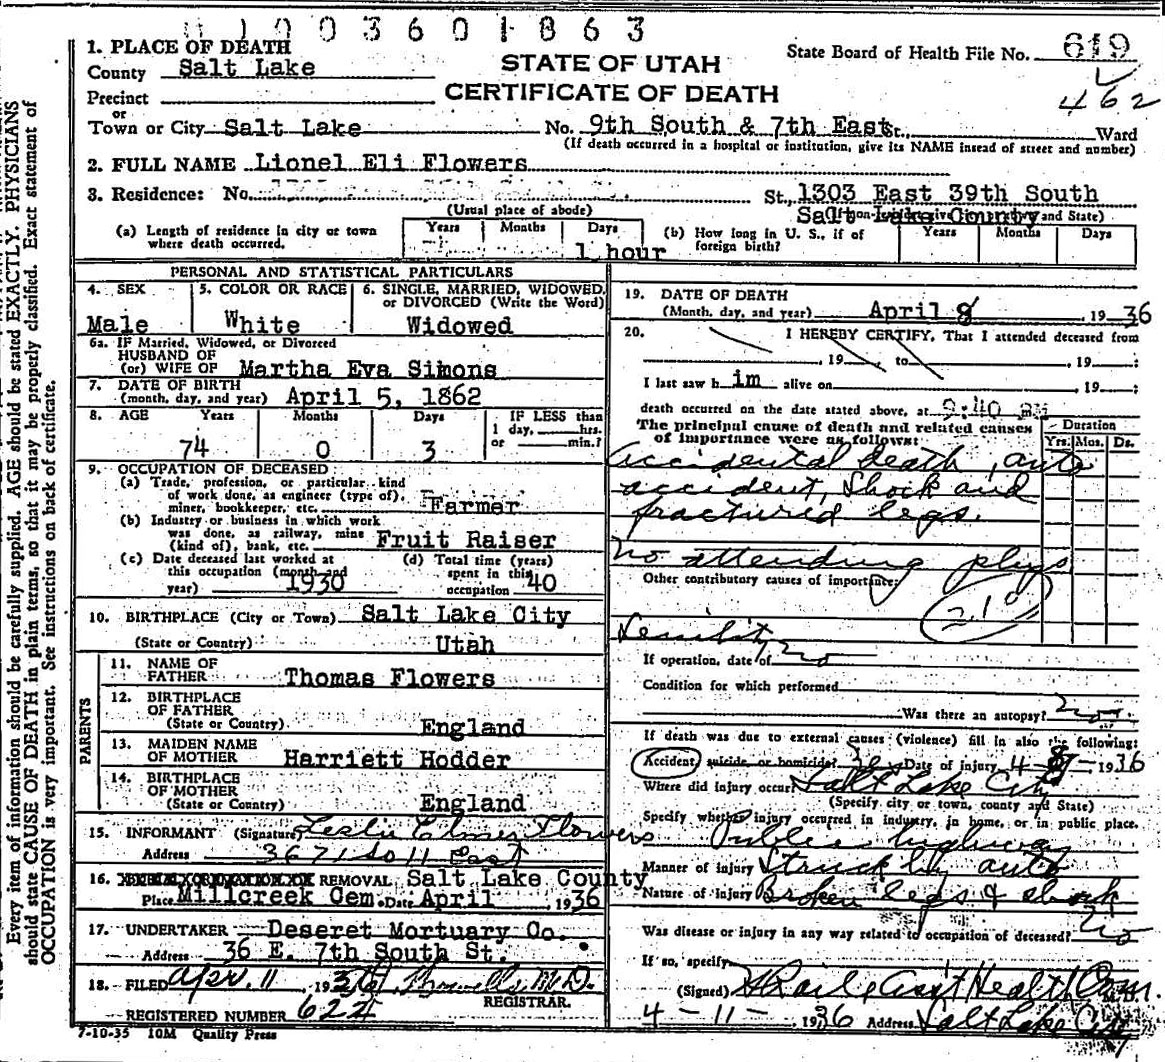 01003601863
1. PLACE OF DEATH
County Salt Lake
STATE OF UTAH
State Board of Health File No. 619
Precinct
CERTIFICATE OF DEATH
462
or
Town or City Salt Lake No. 9th South & 7th East St., Ward
(If death occurred in a hospital or institution, give its NAME insead of street and number)
2. FULL NAME Lionel Eli Flowers
3. Residence: No. St., 1303 East 39th South
(Usual place of abode) Salt Lake County
(a) Length of residence in city or town where death occurred. Years Months Days 1 hour
(b) How long in U. S., if of foreign birth? Years Months Days
PERSONAL AND STATISTICAL PARTICULARS
4. SEX Male
5. COLOR OR RACE White
6. SINGLE, MARRIED, WIDOWED, or DIVORCED (Write the Word) Widowed
6a. IF Married, Widowed, or Divorced
HUSBAND OF
(or) WIFE OF Martha Eva Simons
7. DATE OF BIRTH
(month, day, and year) April 5, 1862
8. AGE Years Months Days IF LESS than
1 day, hrs.
or min.?
74 0 3
9. OCCUPATION OF DECEASED
(a) Trade, profession, or particular kind
of work done, as engineer (type of),
miner, bookkeeper, etc. Farmer
(b) Industry or business in which work
was done, as railway, mine
(kind of), bank, etc. Fruit Raiser
(c) Date deceased last worked at
this occupation (month and
year) 1930
(d) Total time (years)
spent in this
occupation 40
10. BIRTHPLACE (City or Town) Salt Lake City
(State or Country) Utah
PARENTS
11. NAME OF
FATHER Thomas Flowers
12. BIRTHPLACE
OF FATHER
(State or Country) England
13. MAIDEN NAME
OF MOTHER Harriett Hodder
14. BIRTHPLACE
OF MOTHER
(State or Country) England
15. INFORMANT (Signature) Leslie Elmer Flowers
Address 3671 So 11 East
16. REMOVAL Salt Lake County
Place Millcreek Cem. Date April , 1936
17. UNDERTAKER Deseret Mortuary Co.
Address 36 E. 7th South St.
18. FILED Apr. 11 , 1936 M.D.
REGISTRAR.
REGISTERED NUMBER 622
7-10-35 10M Quality Press
19. DATE OF DEATH
(Month, day, and year) April 8 , 19 36
20. I HEREBY CERTIFY, That I attended deceased from
, 19 , to , 19 ;
I last saw him alive on , 19 ;
death occurred on the date stated above, at 9:40 PM
The principal cause of death and related causes
of importance were as follows:
Duration
Yrs. Mos. Ds.
Accidental death, auto
accident, Shock and
fractured legs.
No attending phys
Other contributory causes of importance:
210
Senility
If operation, date of no
Condition for which performed
Was there an autopsy? no.
If death was due to external causes (violence) fill in also the following:
Accident, suicide, or homicide? Date of injury 4-8- 1936
Where did injury occur? Salt Lake City
(Specify city or town, county and State)
Specify whether injury occurred in industry, in home, or in public place.
Public highway
Manner of injury Struck by auto
Nature of injury Broken legs & shock
Was disease or injury in any way related to occupation of deceased? No
If so, specify
(Signed) Ass't Health Com M.D.
4-11- , 1936 Address Salt Lake City
Every item of information should be carefully supplied. AGE should be stated EXACTLY. PHYSICIANS
should state CAUSE OF DEATH in plain terms, so that it may be properly classified. Exact statement of
OCCUPATION is very important. See instructions on back of certificate.